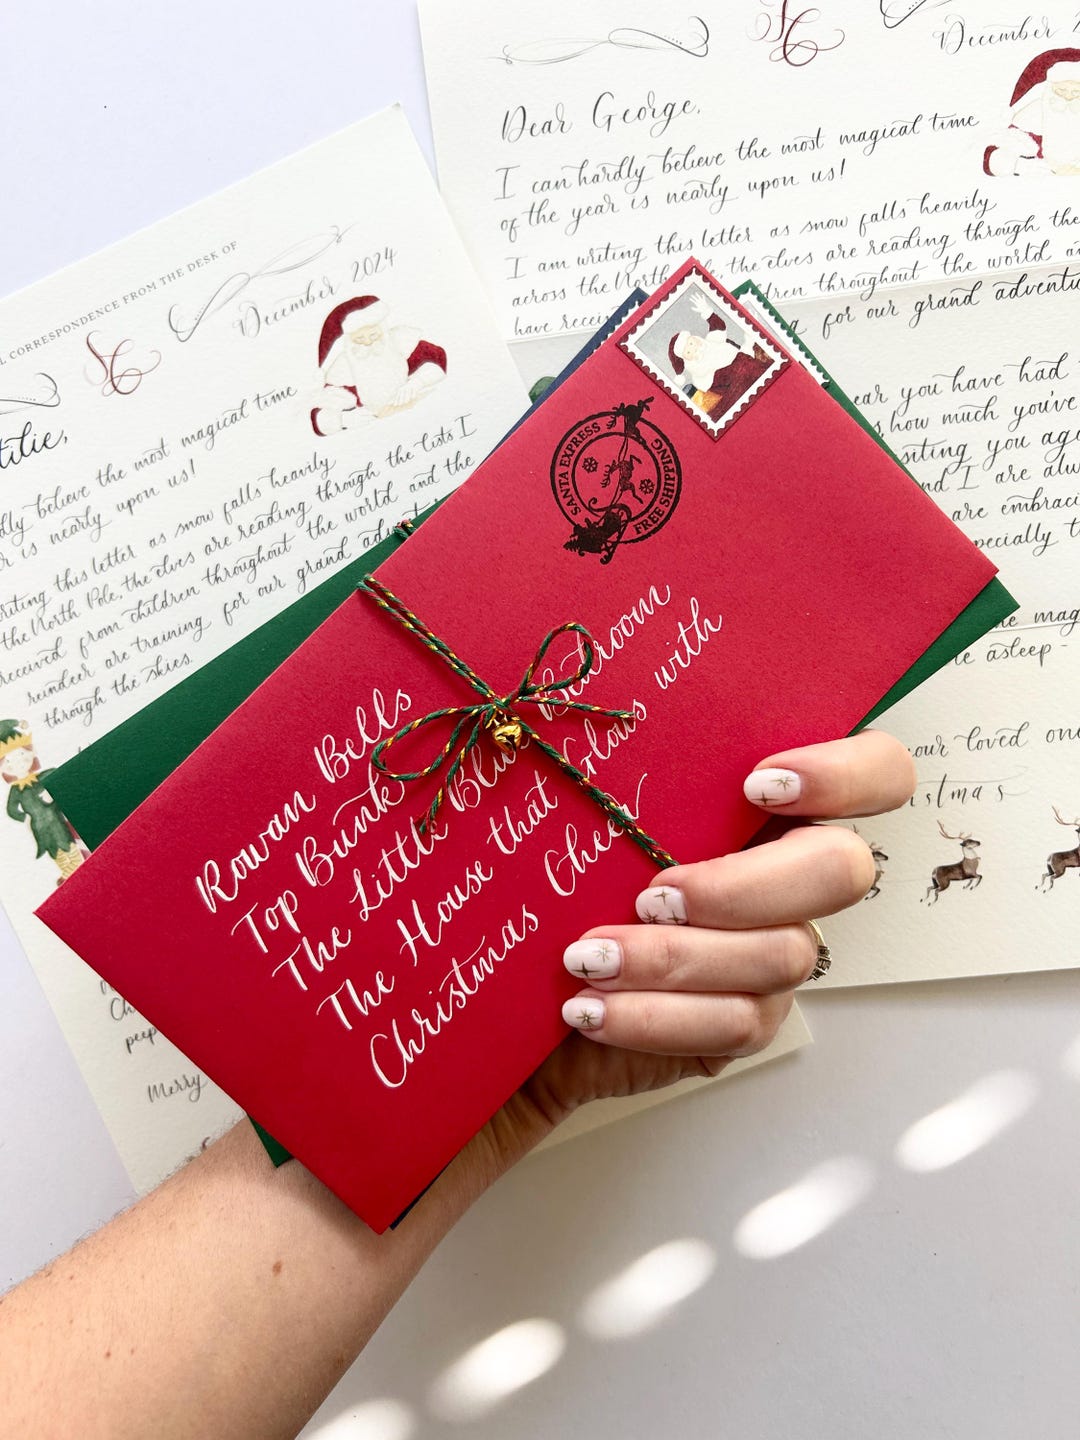 CORRESPONDENCE FROM THE DESK OF
SC
December 2024
most magical time
is nearly upon us!
writing this letter as snow falls heavily
the North Pole, the elves are reading through the lists I
received from children throughout the world and the
reindeer are training for our grand
through the skies.
Merry
SC
December
Dear George,
I can hardly believe the most magical time
of the year is nearly upon us!
I am writing this letter as snow falls heavily
across the North the elves are reading through the
have throughout the world
for our grand
you have had
how much you've
you
and I are
are
asleep -
your loved
SANTA EXPRESS
FREE SHIPPING
Rowan Bells
Top Bunk
The Little Blue Bedroom
The House that Glows with
Christmas Cheer